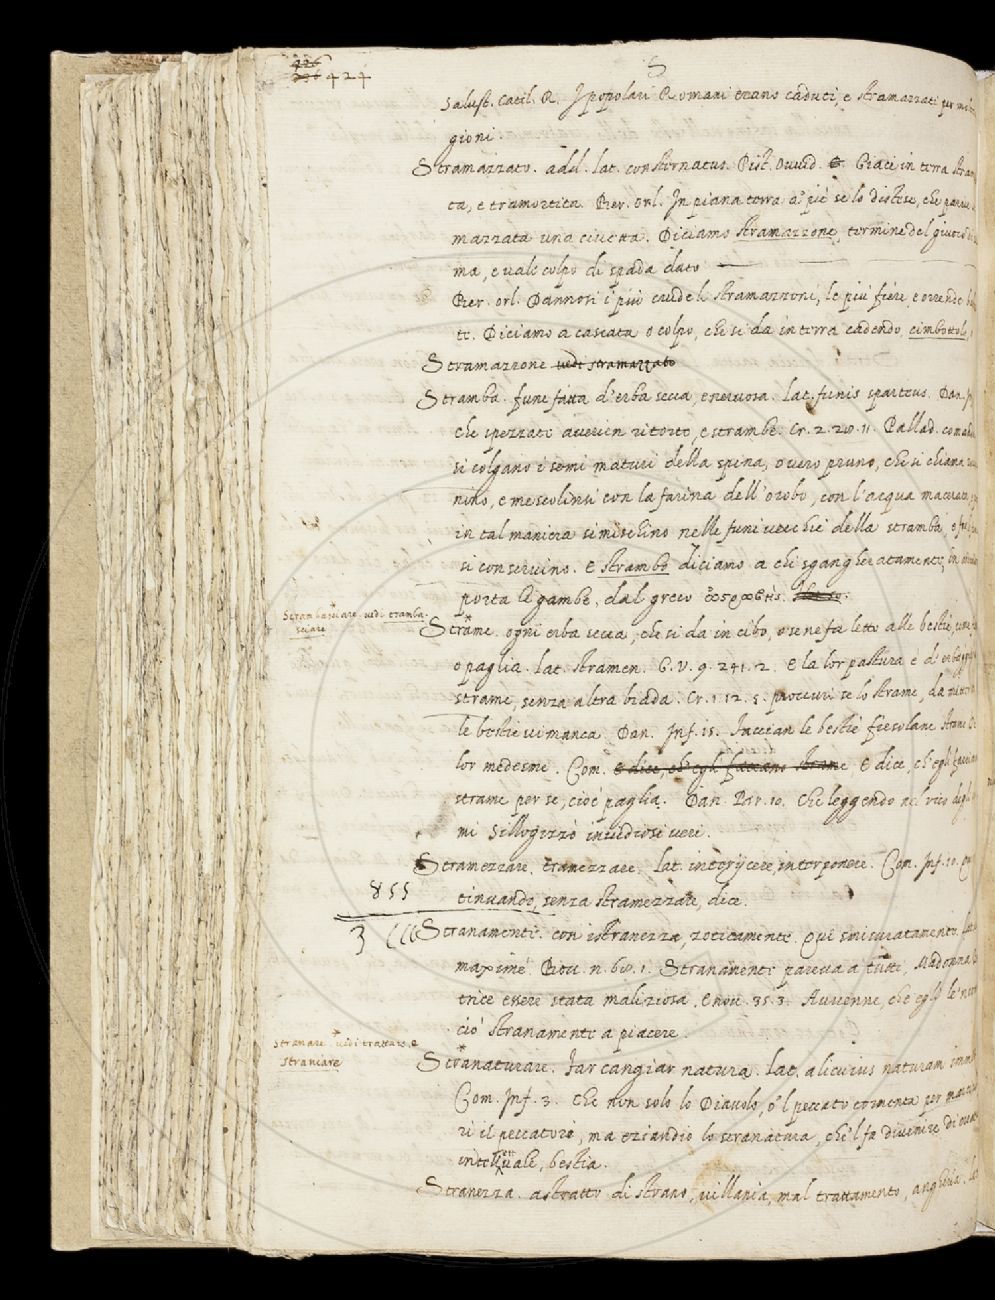 424
S
Salust. Catil. R. I popolari Romani erano caduti, e stramazzati per
gioni.
Stramazzato. add. lat. consternatus. Pist. Ovvid. Giaci in terra
ta, e tramortita. Bier. Orl. In piana terra a' piè se lo distese, che parve
mazzata una civetta. Diciamo stramazzone, termine del giuoco di
ma, e vale colpo di spada dato
Bier. Orl. Dannosi i più crudeli stramazzoni, le più fiere, e orrende
te. Diciamo a cascata o colpo, che si da in terra cadendo, cimbottolo,
Stramazzone vedi stramazzato
Stramba. fune fatta d'erba secca, e nervosa. Lat. funis sparteus. Dan.
che spezzate averien ritorte, e strambe. Cr. 2. 20. 11. Pallad. comanda
si colgano i semi maturi della spina, overo pruno, che si chiama
nino, e mescolinsi con la farina dell'orobo, con l'acqua macerata,
in tal maniera si mischino nelle funi vecchie della stramba,
si conservino. E strambo diciamo a chi sgangheratamente,
porta le gambe, dal greco
Strambasciare. vedi tramba-
sciare
Strame. ogni erba secca, che si da in cibo, o se ne fa letto alle bestie,
o paglia. lat. stramen. G. V. 9. 241. 2. E la lor pastura è d'erba,
strame, senza altra biada. Cr. 1. 12. 5. procuri se lo strame, da
le bestie vi manca. Dan. Inf. 15. Faccian le bestie fiesolane strame
lor medesme. Com. E dice, ch'egli facciano strame E dice, ch'egli
strame per se, cioè paglia. Dan. Par. 10. Che leggendo nel vico degli
mi Sillogizzò invidiosi veri.
Stramezzare, tramezzare. lat. interijcere, interponere. Com. Inf. 10.
855
tinuando, senza stramezzare, dice.
3
Stranamente. con istranezza, zoticamente. Qui smisuratamente.
maxime. Bocc. n. 60. 1. Stranamente pareva a tutti, Madonna
trice essere stata maliziosa. E nov. 35. 3. Avvenne, che egli le'n
ciò stranamente a piacere.
Stranare. vedi trattare, e
straniare
Stranaturare. Far cangiar natura. Lat. alicuius naturam
Com. Inf. 3. Che non solo lo Diavolo, o'l peccato tormenta per
ri il peccatore, ma eziandio lo stranatura, che'l fa divenire di
intellettuale, bestia.
Stranezza. astratto di strano, villania, mal trattamento, angheria.